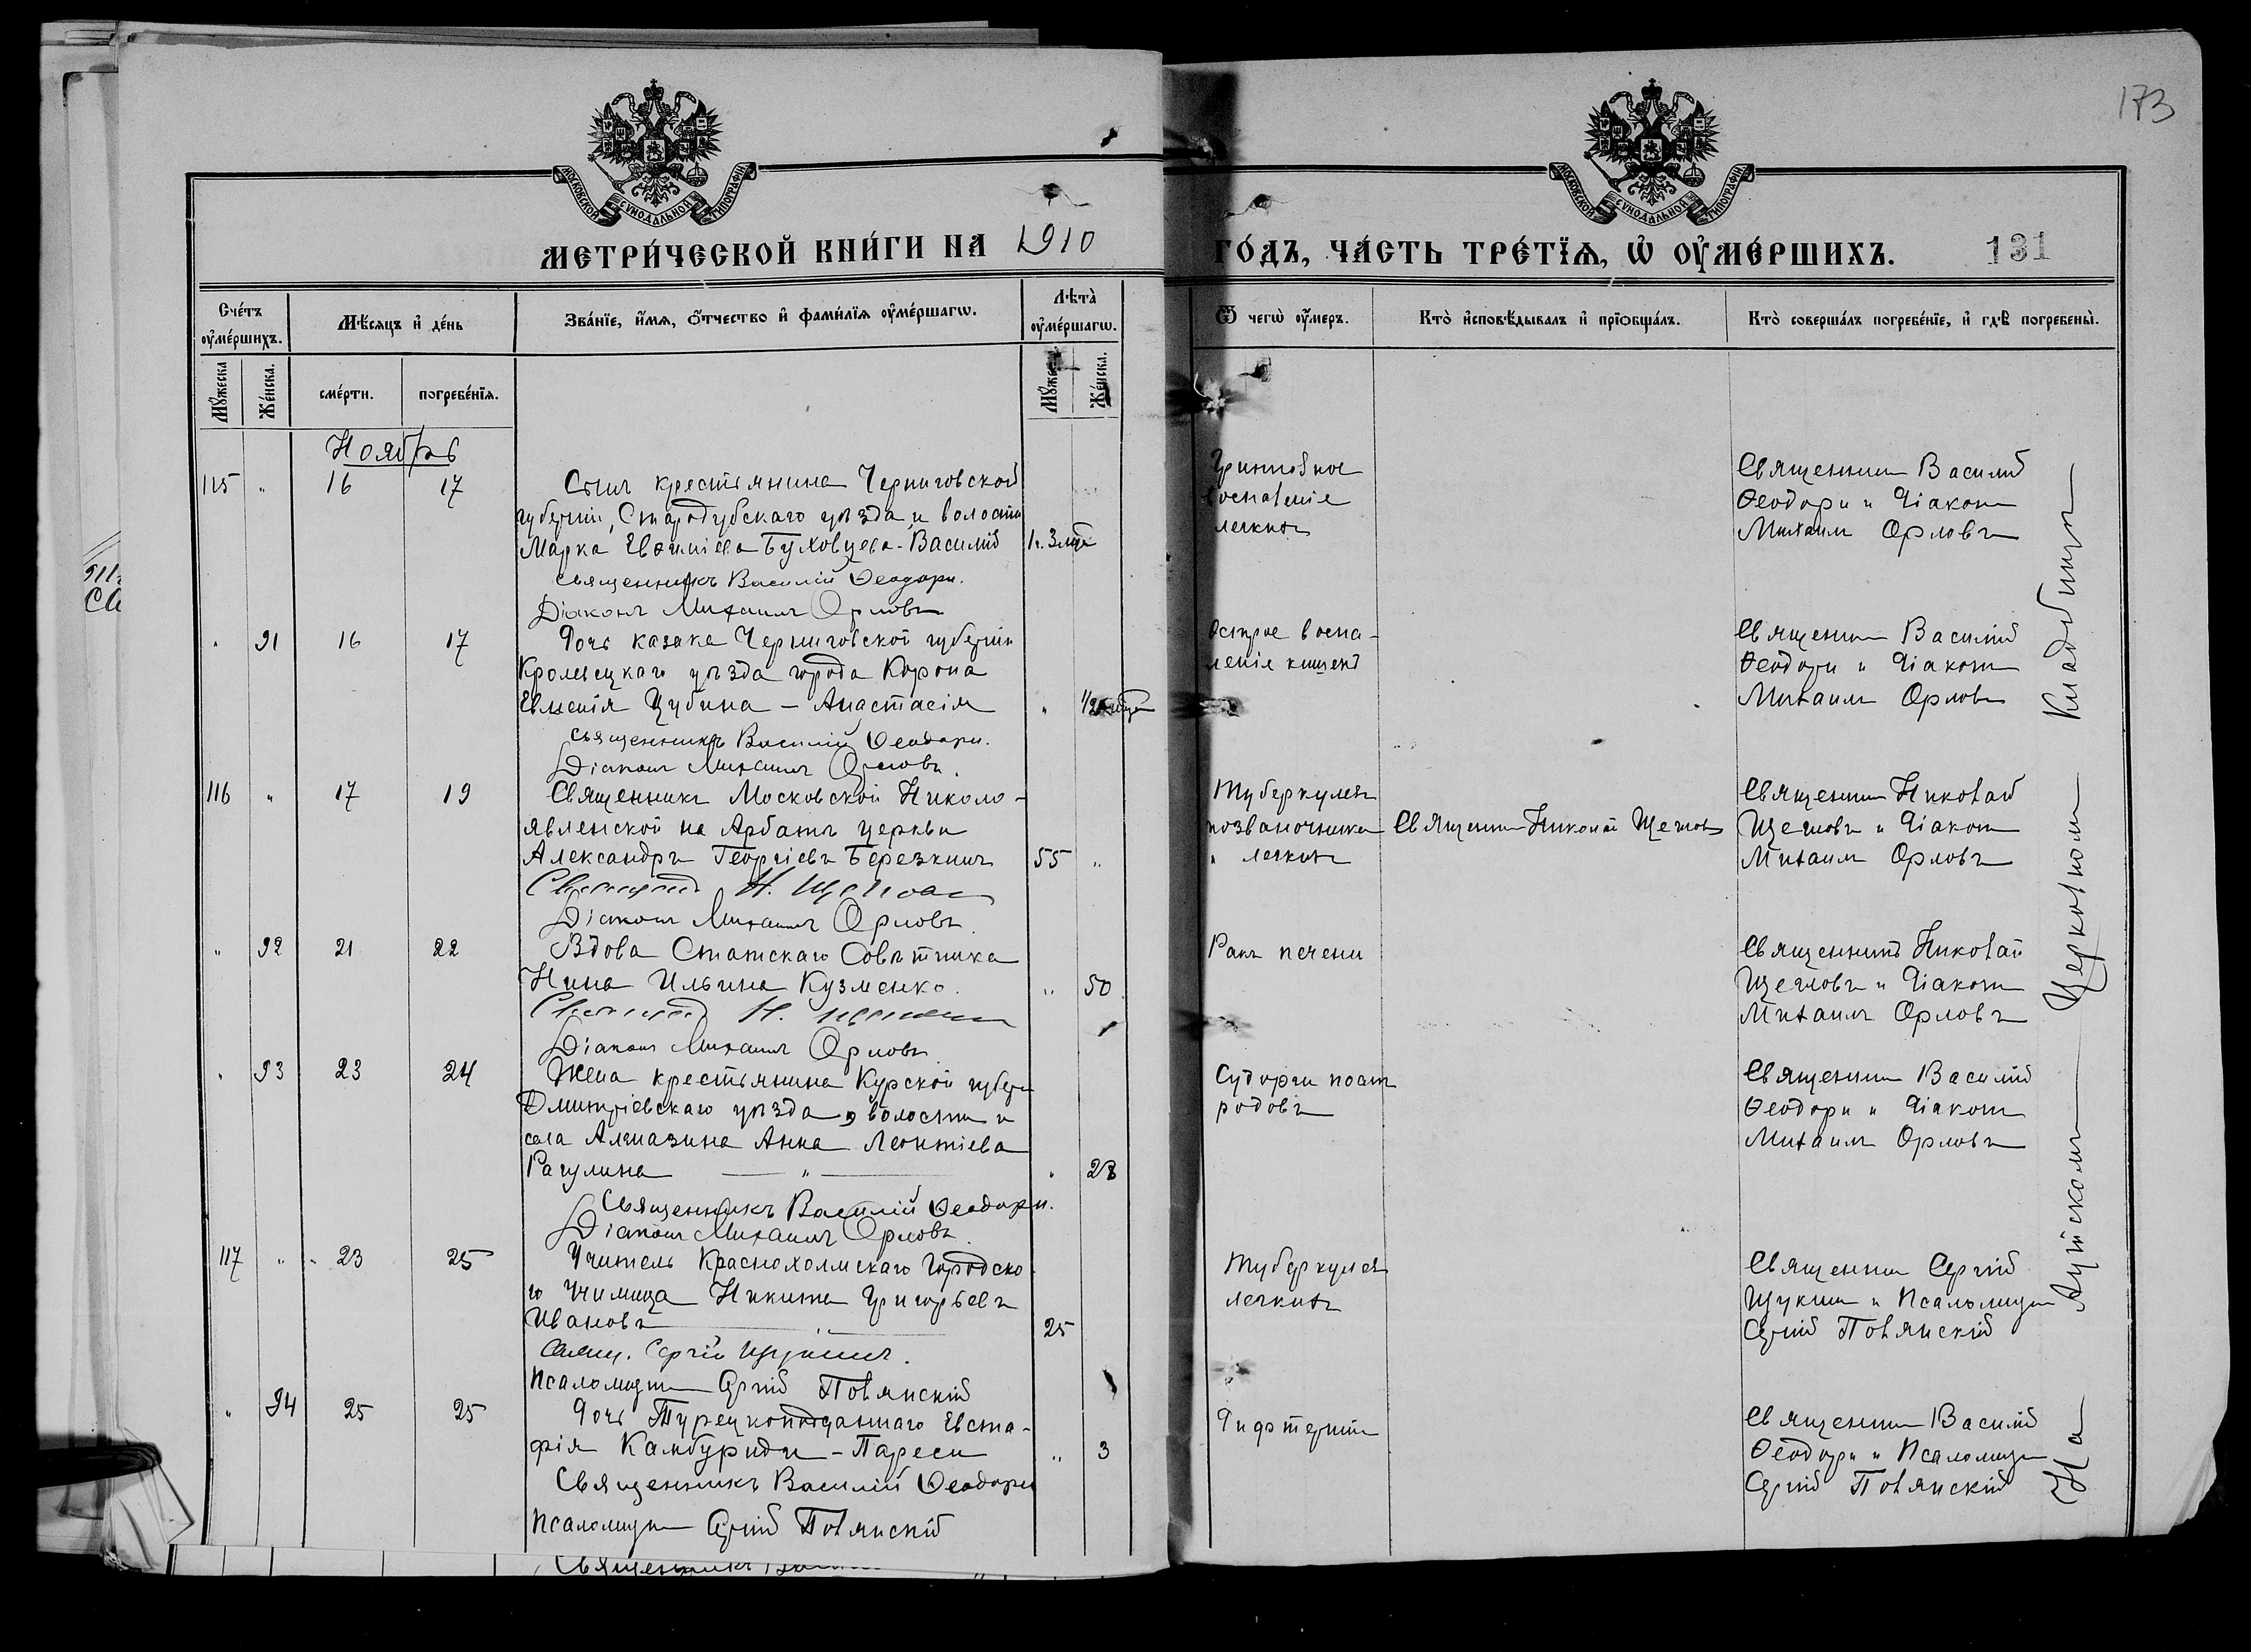 173
МОСКОВСКОЙ СѴНОДАЛЬНОЙ ТИПОГРАФІИ
МОСКОВСКОЙ СѴНОДАЛЬНОЙ ТИПОГРАФІИ
МЕТРИ́ЧЕСКОЙ КНИ́ГИ НА 1910
ГО́ДЪ, ЧА́СТЬ ТРЕ́ТЇѦ, Ѡ҆ ОУ҆МЕ́РШИХЪ. 131
Сче́тъ оу҆ме́ршихъ.
Мѣ́сяцъ и҆ де́нь
Зва́нїе, и҆́мѧ, ѻ҆́тчество и҆ фами́лїѧ оу҆ме́ршагѡ.
Лѣта̀ оу҆ме́ршагѡ.
Ѿ чегѡ̀ оу҆́меръ.
Кто̀ и҆сповѣ́дывалъ и҆ прїѡбща́лъ.
Кто̀ соверша́лъ погребе́нїе, и҆ гдѣ̀ погребены̀.
Мꙋ́жеска
Же́нска.
сме́рти.
погребе́нїѧ.
Мꙋ́жеска
Же́нска.
Ноябрь
115 " 16 17 Сынъ крестьянина Черниговской
губерніи, Стародубскаго уѣзда и волости
Марка Евѳиміева Буховцева - Василій
Священникъ Василій Ѳеодори.
Діаконъ Михаилъ Орловъ
воспаленіе
легкихъ
Священникъ Василій
Ѳеодори и Діаконъ
Михаилъ Орловъ
" 91 16 17 Дочь казака Черниговской губерніи
Кролевецкаго уѣзда города Коропа
Евменія Цубина - Анастасія "
Священникъ Василій Ѳеодори.
Діаконъ Михаилъ Орловъ.
Острое воспа-
леніе кишекъ
Священникъ Василій
Ѳеодори и Діаконъ
Михаилъ Орловъ
116 " 17 19 Священникъ Московской Николо-
явленской на Арбатѣ церкви
Александръ Георгіевъ Березкинъ 55 "
Священникъ Н. Щегловъ
Діаконъ Михаилъ Орловъ.
Туберкулезъ
позвоночника
и легкихъ
Священникъ Николай Щегловъ
Священникъ Николай
Щегловъ и Діаконъ
Михаилъ Орловъ
" 92 21 22 Вдова Статскаго Совѣтника
Нина Ильина Кузменко. " 50
Священникъ Н. Щегловъ
Діаконъ Михаилъ Орловъ
Ракъ печени
Священникъ Николай
Щегловъ и Діаконъ
Михаилъ Орловъ
" 93 23 24 Жена крестьянина Курской губерн
Дмитріевскаго уѣзда, волости и
села Алмазина Анна Леонтіева
Рагулина " 28
Священникъ Василій Ѳеодори.
Діаконъ Михаилъ Орловъ.
Судороги послѣ
родовъ
Священникъ Василій
Ѳеодори и Діаконъ
Михаилъ Орловъ
117 " 23 25 Учитель Краснохолмскаго Городско-
го Училища Никита Григорьевъ
Ивановъ 25
Свящ. Сергій Щукинъ.
Псаломщикъ Сергій Полянскій
Туберкулезъ
легкихъ
Священникъ Сергій
Щукинъ и Псаломщикъ
Сергій Полянскій
" 94 25 25 Дочь Турецкоподданнаго Евста-
фія Камбуриди - Пареси " 3
Священникъ Василій Ѳеодори
Псаломщикъ Сергій Полянскій
Дифтеритъ
Священникъ Василій
Ѳеодори и Псаломщикъ
Сергій Полянскій
На Аутскомъ Церковномъ Кладбищѣ